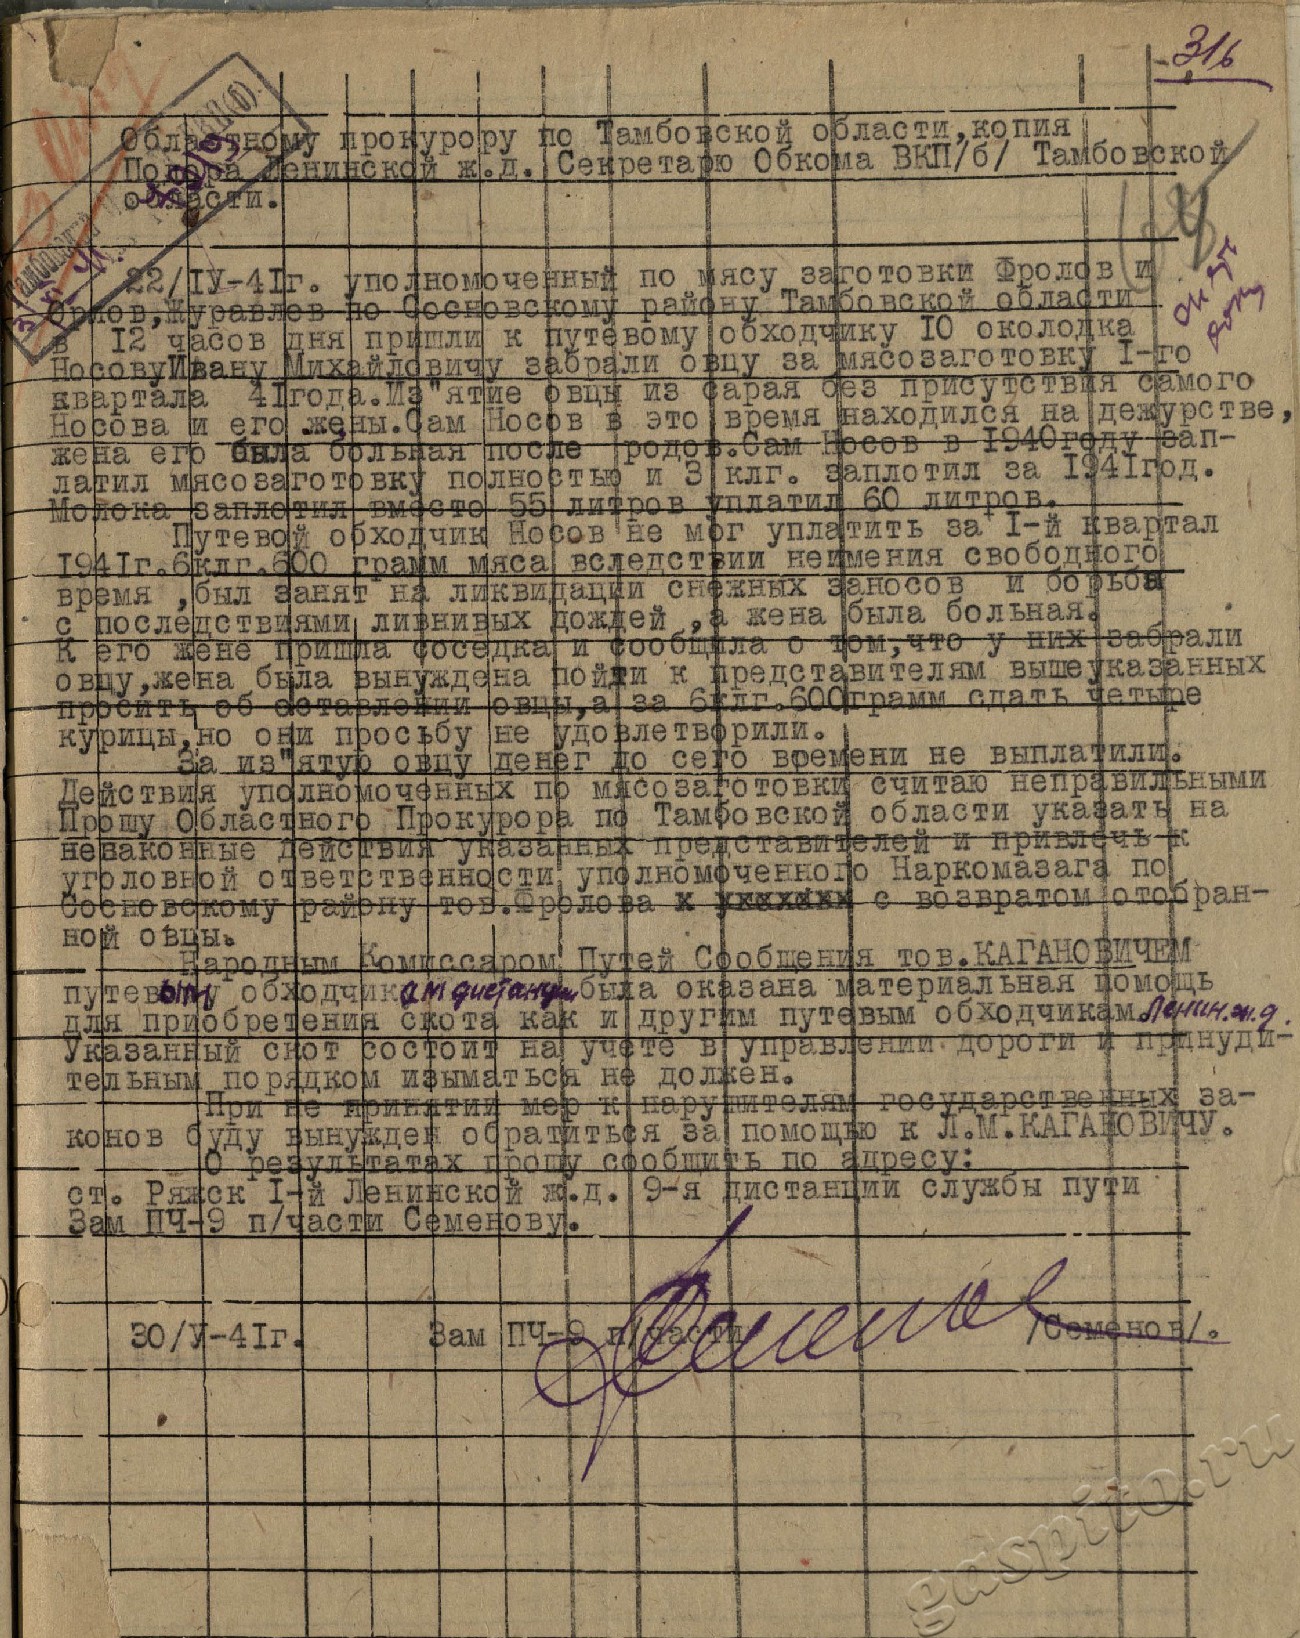 316
Областному прокурору по Тамбовской области,копия
Ленинской ж.д. Секретарю Обкома ВКП/б/ Тамбовской
области.
22/IУ-41г. уполномоченный по мясу заготовки Фролов и
Орлов,Журавлев по Сосновскому району Тамбовской области
в 12 часов дня пришли к путевому обходчику 10 околодка
НосовуИвану Михайловичу забрали овцу за мясозаготовку I-го
квартала 41года.Из"ятие овцы из сарая без присутствия самого
Носова и его жены.Сам Носов в это время находился на дежурстве,
жена его была больная после родов.Сам Носов в 1940году зап-
латил мясозаготовку полностью и 3 клг. заплотил за 1941год.
Молока заплотил вместо 55 литров уплатил 60 литров.
Путевой обходчик Носов не мог уплатить за I-й квартал
1941г.6клг.600 грамм мяса вследствии неимения свободного
время ,был занят на ликвидации снежных заносов и борьба
с последствиями ливнивых дождей ,а жена была больная.
К его жене пришла соседка и сообщила о том,что у них забрали
овцу,жена была вынуждена пойти к представителям вышеуказанных
просить об оставлении овцы,а за 6клг.600грамм сдать четыре
курицы,но они просьбу не удовлетворили.
За из"ятую овцу денег до сего времени не выплатили.
Действия уполномоченных по мясозаготовки считаю неправильными
Прошу Областного Прокурора по Тамбовской области указать на
незаконные действия указанных представителей и привлечь к
уголовной ответственности уполномоченного Наркомазага по
Сосновскому району тов.Фролова с возвратом отобран-
ной овцы.
Народным Комиссаром Путей Сообщения тов.КАГАНОВИЧЕМ
путевым обходчикам дистанции была оказана материальная помощь
для приобретения скота как и другим путевым обходчикам Ленин.ж.д.
Указанный скот состоит на учете в управлении дороги и принуди-
тельным порядком изыматься не должен.
При не принятии мер к нарушителям государственных за-
конов буду вынужден обратиться за помощью к Л.М.КАГАНОВИЧУ.
О результатах прошу сообщить по адресу:
ст. Ряжск I-й Ленинской ж.д. 9-я дистанции службы пути
Зам ПЧ-9 п/части Семенову.
30/У-41г. Зам ПЧ-9 п/части /Семенов/.
gaspito.ru